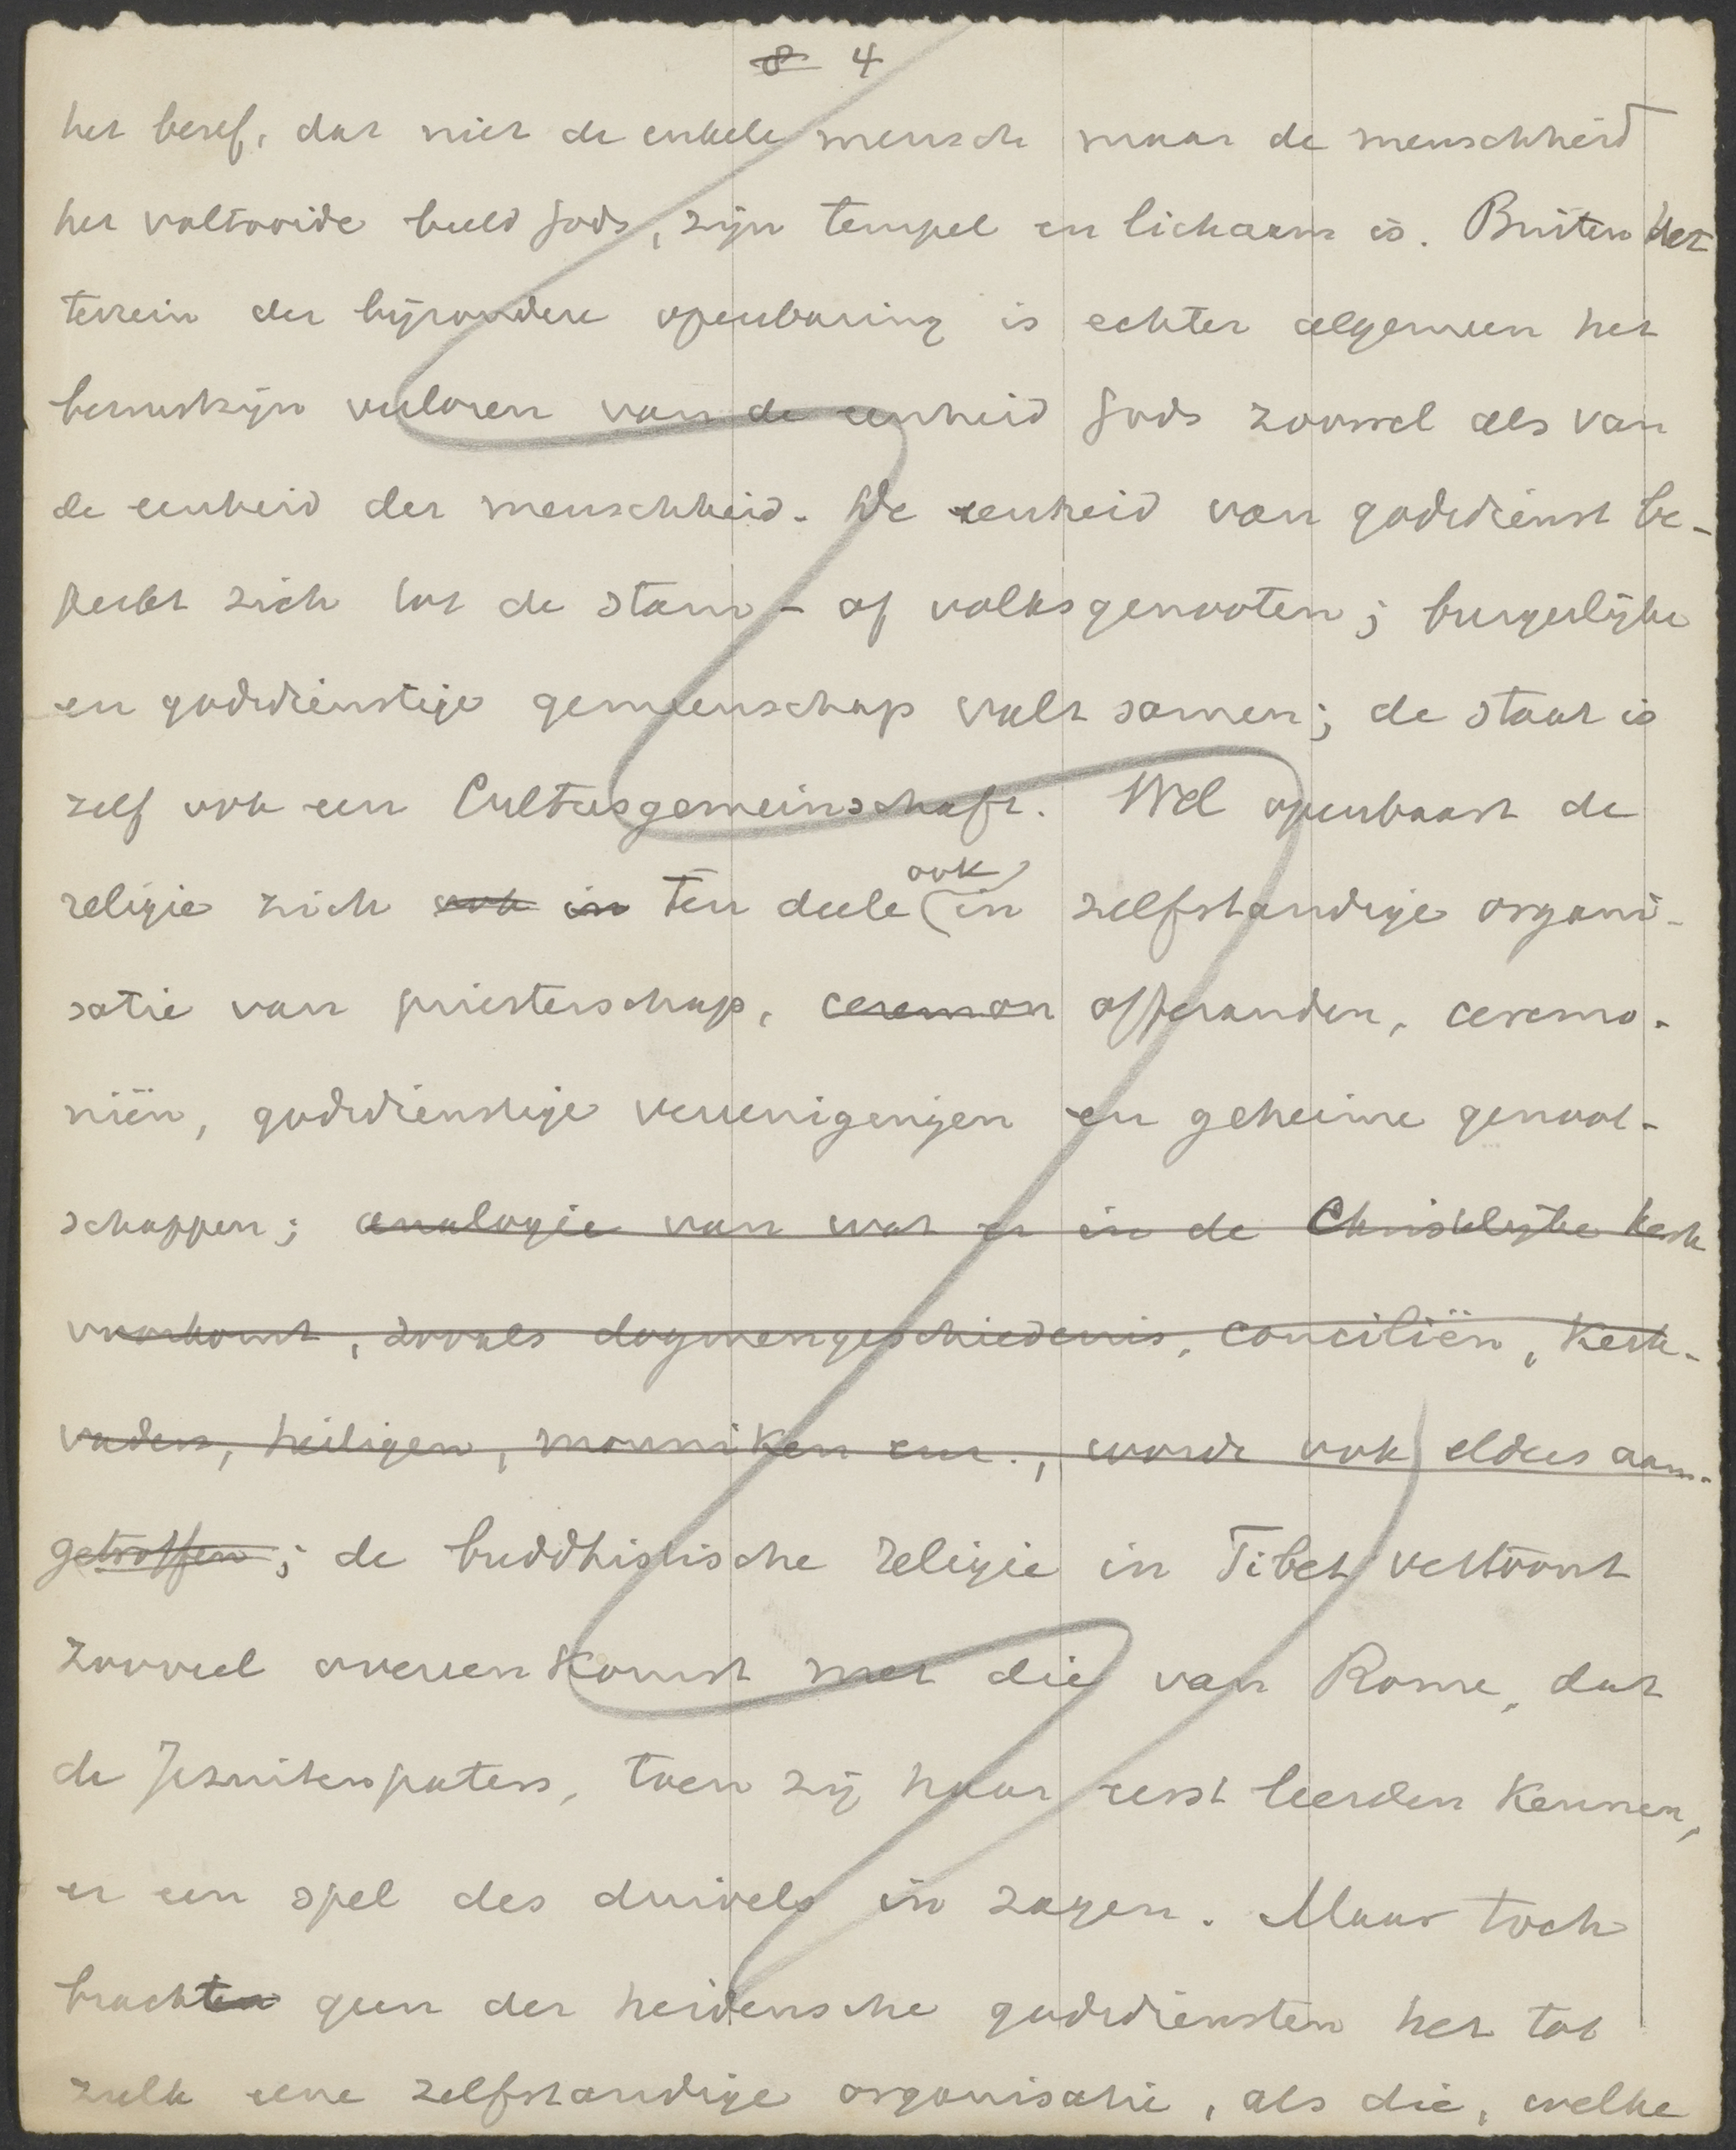 8 4
het besef, dat niet de enkele mensch maar de menschheid
het voltooide beeld Gods, zijn tempel en lichaam is. Buiten het
terrein der bijzondere openbaring is echter algemeen het
bewustzijn verloren van de eenheid Gods zoowel als van
de eenheid der menschheid. De eenheid van godsdienst be-
perkt zich tot de stam- of volksgenooten; burgerlijke
en godsdienstige gemeenschap valt samen; de staat is
zelf ook een Cultusgemeinschaft. Wel openbaart de
ook
religie zich ook in ten deele in zelfstandige organi-
satie van priesterschap, ceremon offeranden, ceremo-
niën, godsdienstige vereenigingen en geheime genoot-
schappen; analogie van wat er in de Christelijke kerk
voorkomt, zooals dogmengeschiedenis, conciliën, kerk-
vaders, heiligen, monniken enz., wordt ook elders aan-
getroffen; de buddhistische religie in Tibet vertoont
zooveel overeenkomst met die van Rome, dat
de Jezuitenpaters, toen zij haar eerst leerden kennen,
er een spel des duivels in zagen. Maar toch
brachten geen der heidensche godsdiensten het tot
zulk eene zelfstandige organisatie, als die, welke